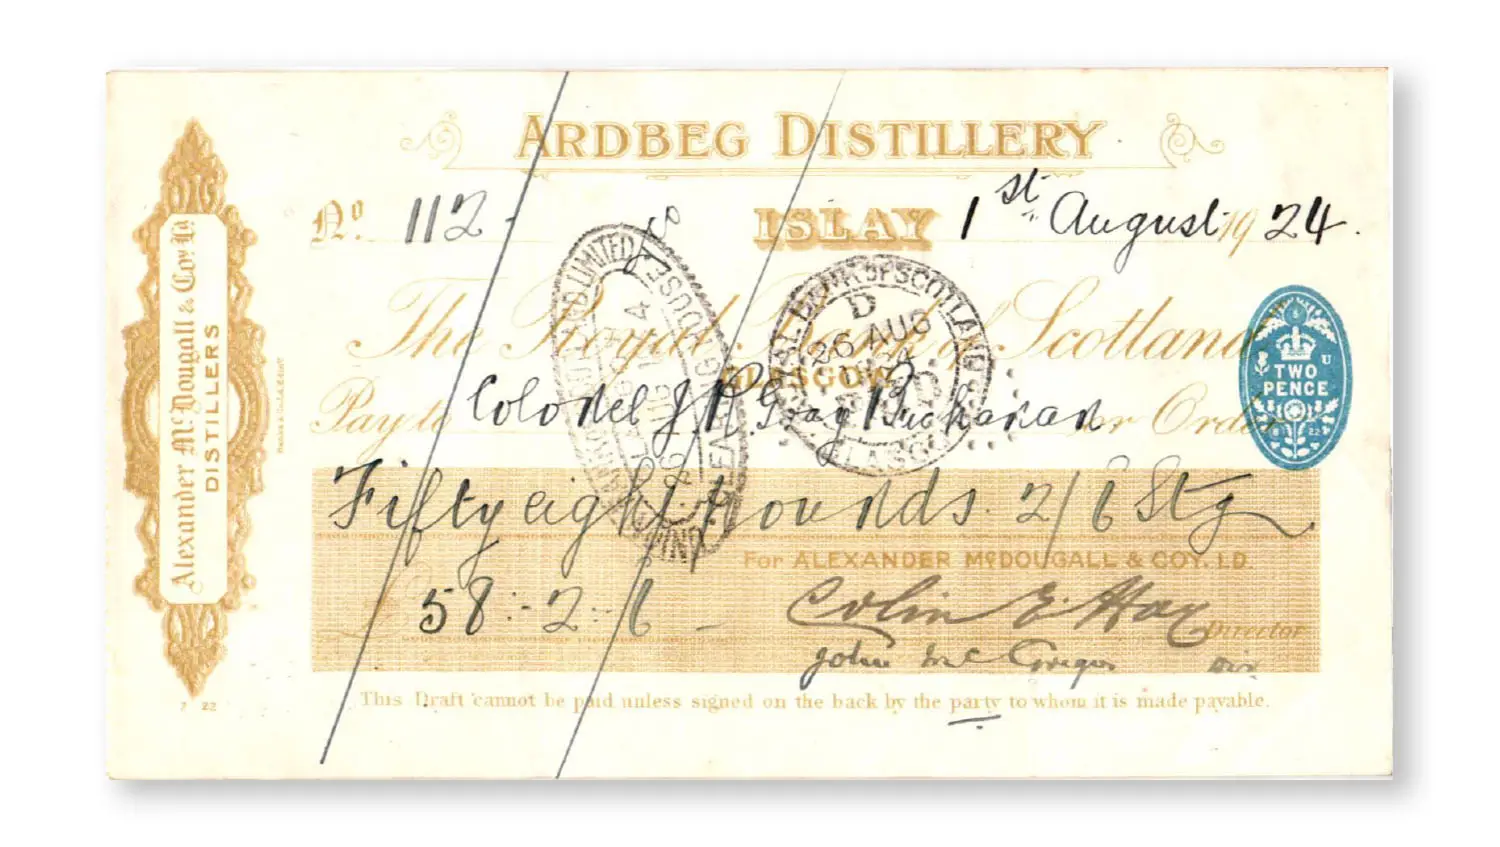 ARDBEG DISTILLERY
No. 112.
ISLAY 1st August 1924.
The Royal Bank of Scotland
GLASGOW
Pay to Colonel J. R. Gray Buchanan or Order
Fifty eight Pounds. 2/6 Stg
£ 58:-2:-6
For ALEXANDER McDOUGALL & COY. LD.
Colin E. Hay
Director
John McGregor Dir
This Draft cannot be paid unless signed on the back by the party to whom it is made payable.
Alexander McDougall & Coy. Ld.
DISTILLERS
7 22
U
TWO
PENCE
22
BANK OF SCOTLAND
D
26 AUG
GLASGOW
LIMITED
AUG